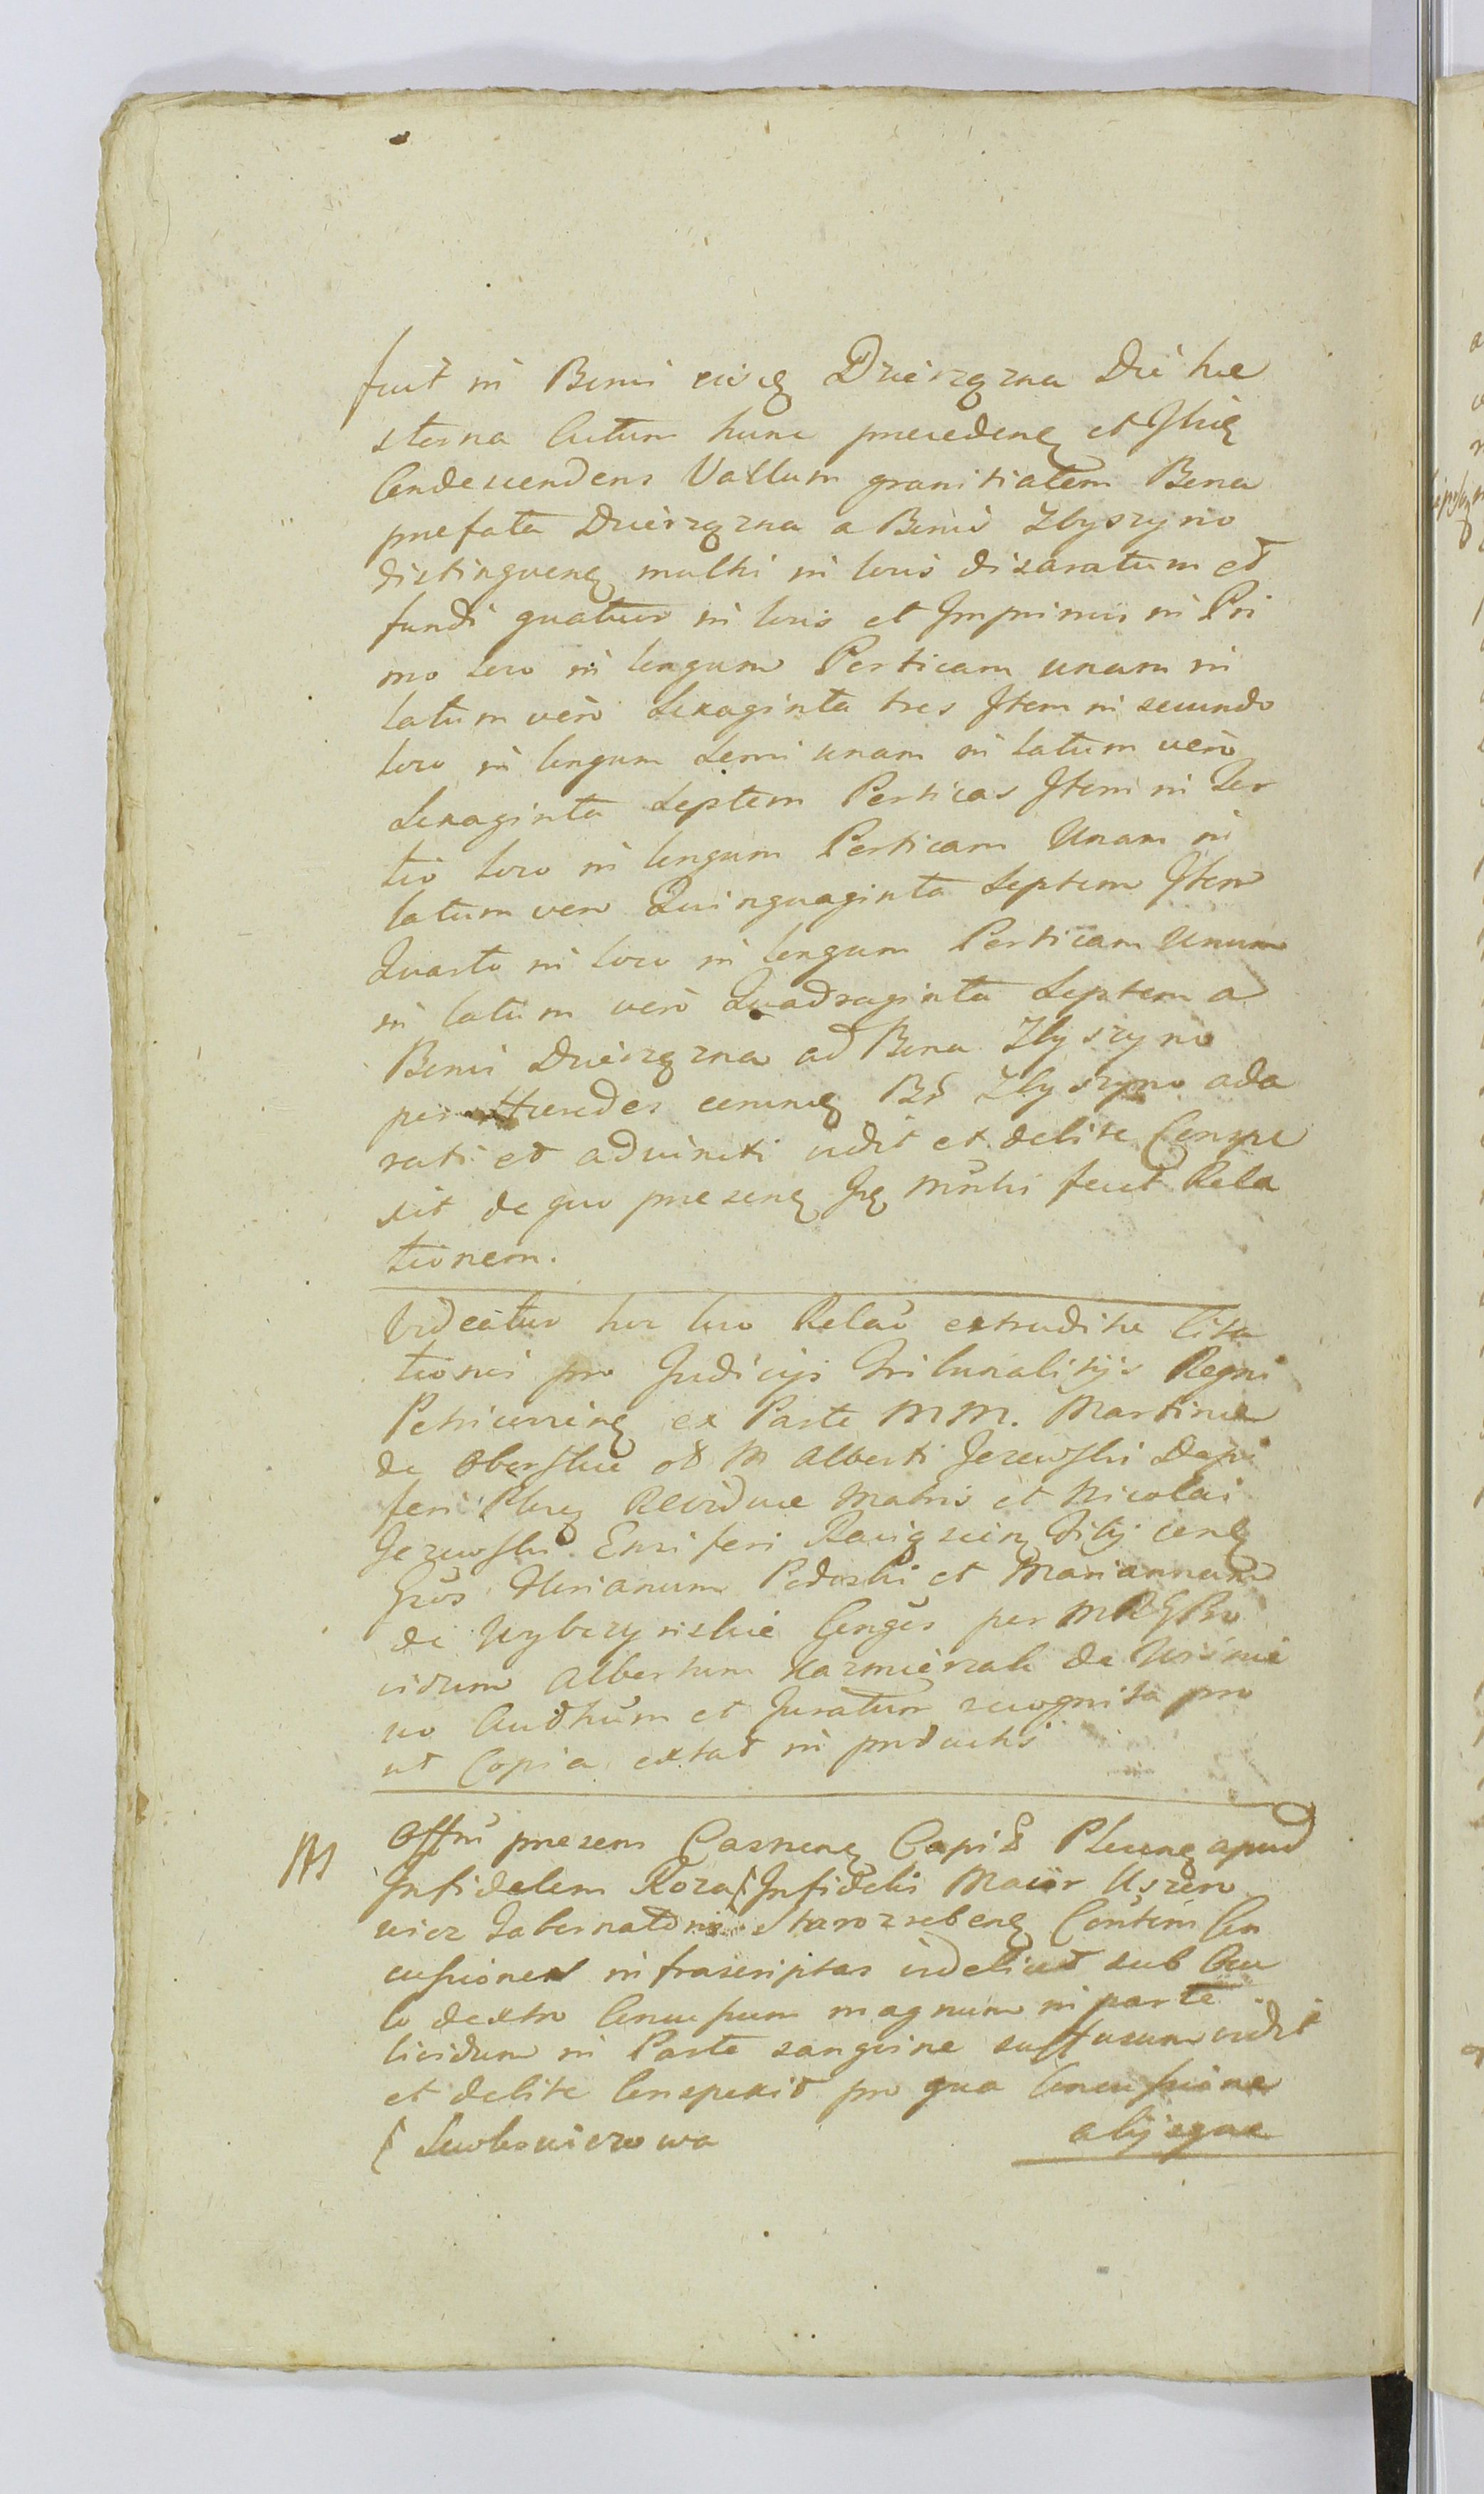 fuit in Bonis eisq Dzierzązna Die he
sterna Actum hunc precedenq et Ibiq
Condescendens Vallum granitialem Bona
prefata Dzierzązna a Bonis Zbyszyno
distinguenq multis in locis disaratum et
fundi quatuor in locis et Imprimis in Pri
mo loco in longum Perticam unam in
latum vero Sexaginta tres Item in secundo
loco in longum Semi unam in latum vero
Sexaginta Septem Perticas Item in Ter
tio loco in longum Perticam Unam in
latum vero Quinquaginta Septem Item
Quarto in loco in longum Perticam Unum
in latum vero Quadraginta Septem a
Bonis Dzierzązna ad Bona Zbyszyno
per Hæredes eorumq Bs Zbyszyno ada
rati et adiuncti vidit et debite Conspe
xit de quo presenq Iq mnhi fecit Rela
tionem.
Videatur hoc loco Relao extradite Cita
tionis pro Judicijs Tribunalitijs Regni
Petricovienq ex Parte MM. Martinæ
de Oberskie ol M Alberti Jezewski Dapi
feri Plocq Reviduæ Matris et Nicolai
Jezewski Ensiferi Raciązeinq Filij conq
Gsos Florianum Podoski et Mariannam
de Wybczynskie Conges per MRGPro
vidum Albertum Kazmierzak de Unimie
wo Authum et Juratum recognita pro
ut Copia extat in productis
M Offm presens Castrenq Capi Plocenq apud
Infidelem Roza ſ Infidelis Maior Uszero
wicz Tabernatoris Starozrebenq Contem Con
cussiones infrascriptas videlicet sub Ocu
lo dextro Concussum magnum in parte
lividum in Parte sanguine suffusum vidit
et debite Conspexit pro qua Concussione
ſ Lewkowiczowa alijsque